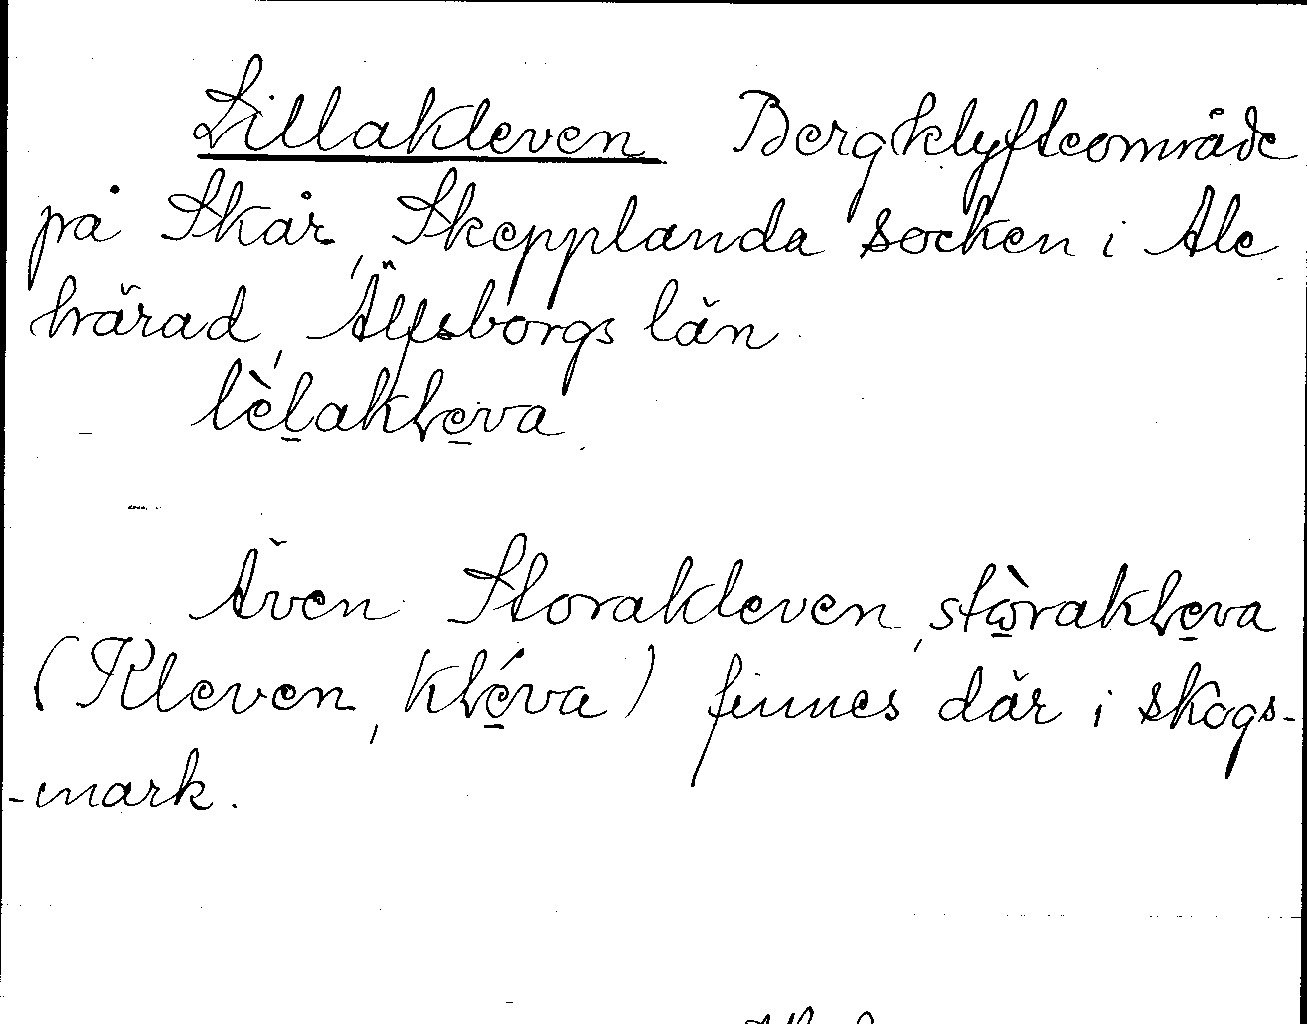 Lillakleven Bergklyfteområde
på Skår, Skepplanda socken i Ale
härad, Älfsborgs län
lèlakleva
Även Storakleven, stòrakleva
(Kleven, kléva) finnes där i skogs-
-mark.